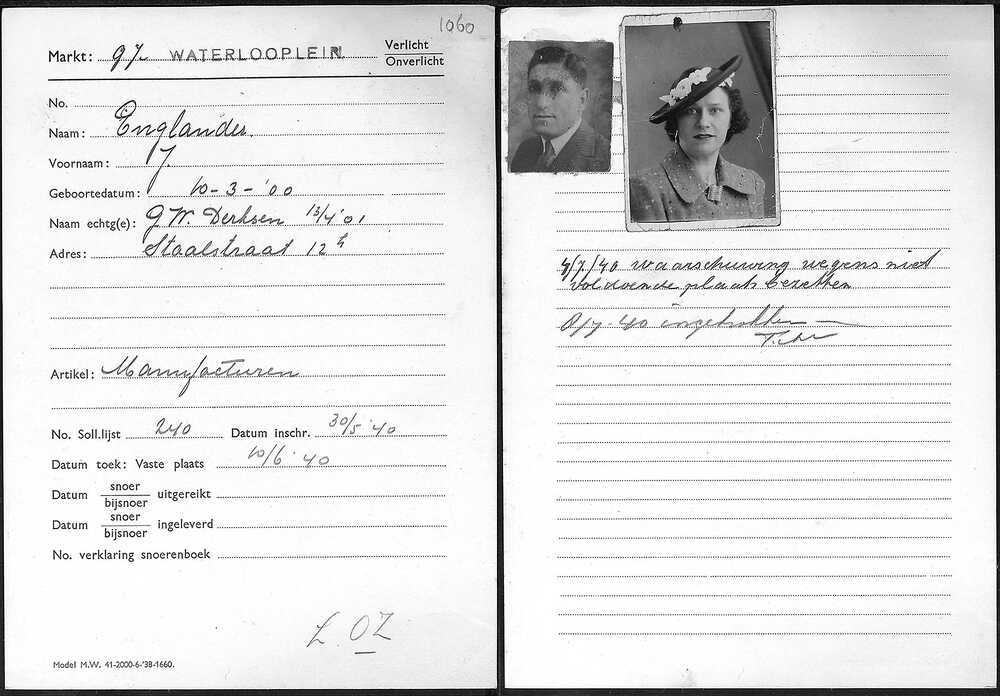 1060
Markt: 97 WATERLOOPLEIN. Verlicht
Onverlicht
No.
Naam: Englander.
Voornaam: J.
Geboortedatum: 10-3-'00
Naam echtg(e): G.W. Derksen 13/4 '01
Adres: Staalstraat 12 h
Artikel: Manufacturen
No. Soll.lijst 240 Datum inschr. 30/5 '40
Datum toek: Vaste plaats 10/6 '40
Datum snoer
bijsnoer uitgereikt
Datum snoer
bijsnoer ingeleverd
No. verklaring snoerenboek
L. OZ
Model M.W. 41-2000-6-'38-1660.
4/7/40 waarschuwing wegens niet
voldoende plaats bezetten
/7-40 ingetrokken